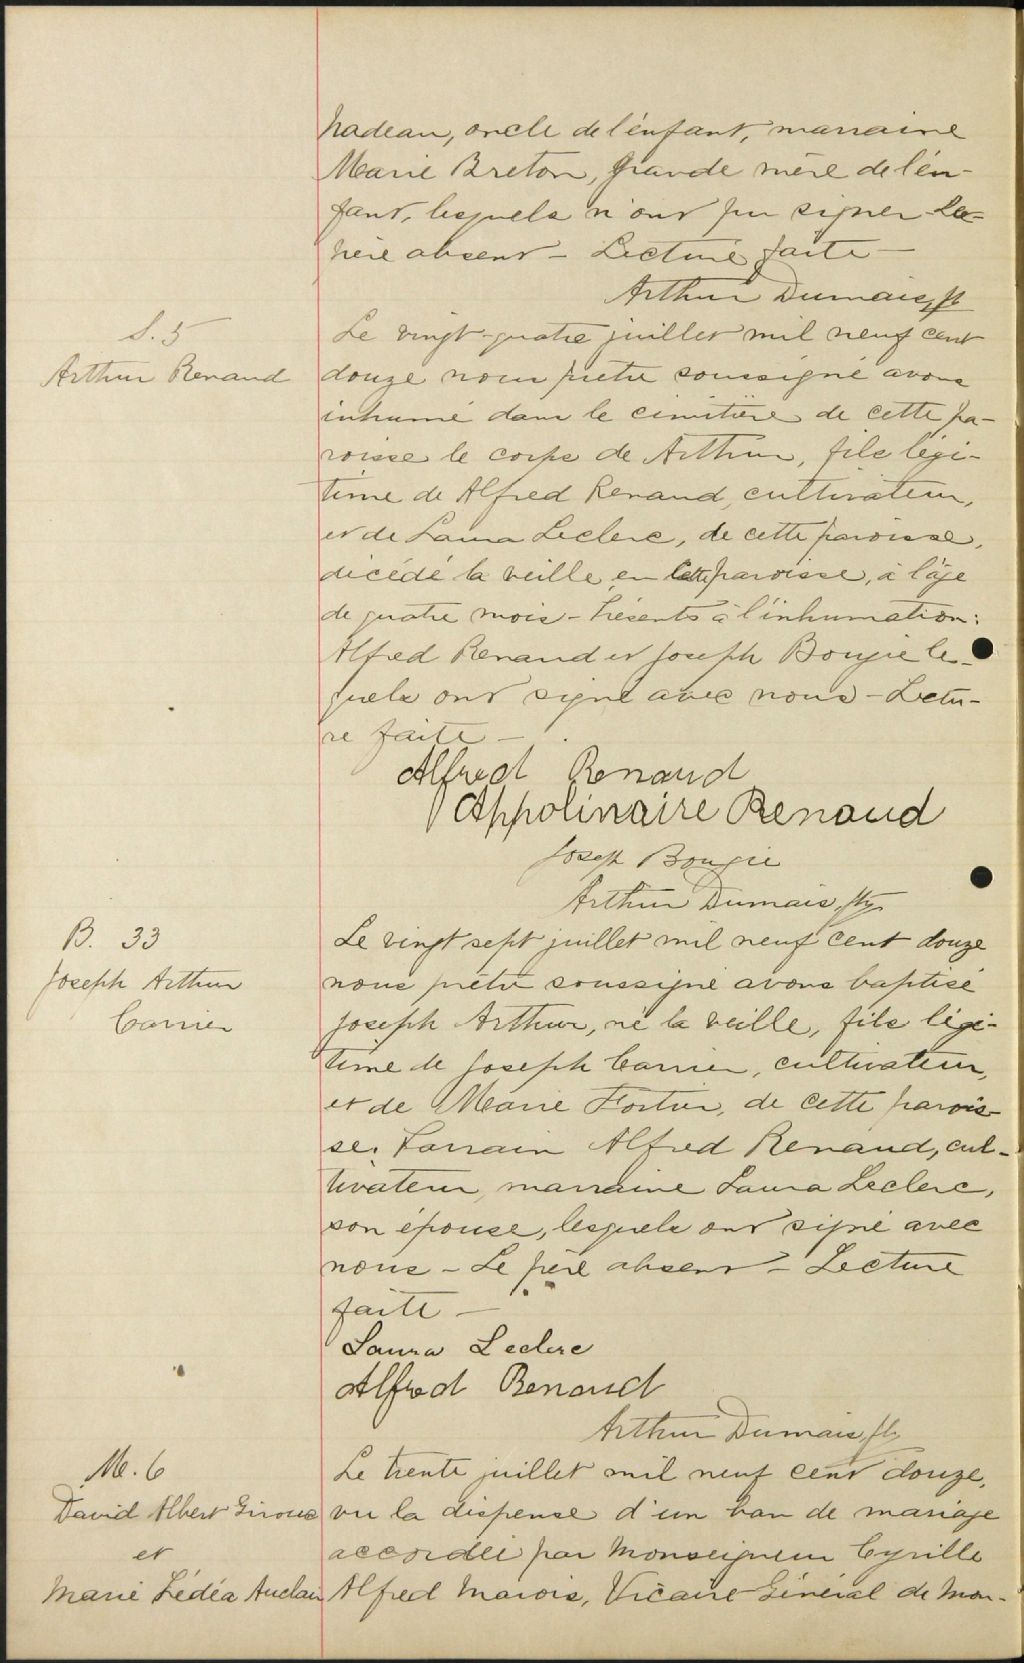 Nadeau, oncle de l'enfant, marraine
Marie Breton, grande mère de l'en-
fant, lesquels n'ont pu signer - Le
père absent - Lecture faite -
Arthur Dumais, ptr
S. 5
Arthur Renaud
Le vingt-quatre juillet mil neuf cent
douze nous prêtre soussigné avons
inhumé dans le cimitière de cette pa-
roisse le corps de Arthur, fils légi-
time de Alfred Renaud, cultivateur,
et de Laura Leclerc, de cette paroisse,
décédé la veille, en cette paroisse, à l'âge
de quatre mois - Présents à l'inhumation:
Alfred Renaud et Joseph Bougie les-
quels ont signé avec nous - Lectu-
re faite -
Alfred Renaud
Appolinaire Renaud
Joseph Bougie
Arthur Dumais, ptr
B. 33
Joseph Arthur
Carrier
Le vingt sept juillet mil neuf cent douze
nous prêtre soussigné avons baptisé
Joseph Arthur, né la veille, fils légi-
time de Joseph Carrier, cultivateur,
et de Marie Fortier, de cette parois-
se. Parrain Alfred Renaud, cul-
tivateur, marraine Laura Leclerc,
son épouse, lesquels ont signé avec
nous - Le père absent - Lecture
faite -
Laura Leclerc
Alfred Renaud
Arthur Dumais, ptr
M. 6
David Albert Giroux
et
Marie Lédéa Auclair
Le trente juillet mil neuf cent douze,
vu la dispense d'un ban de mariage
accordée par Monseigneur Cyrille
Alfred Marois, Vicaire-Général de Mon-